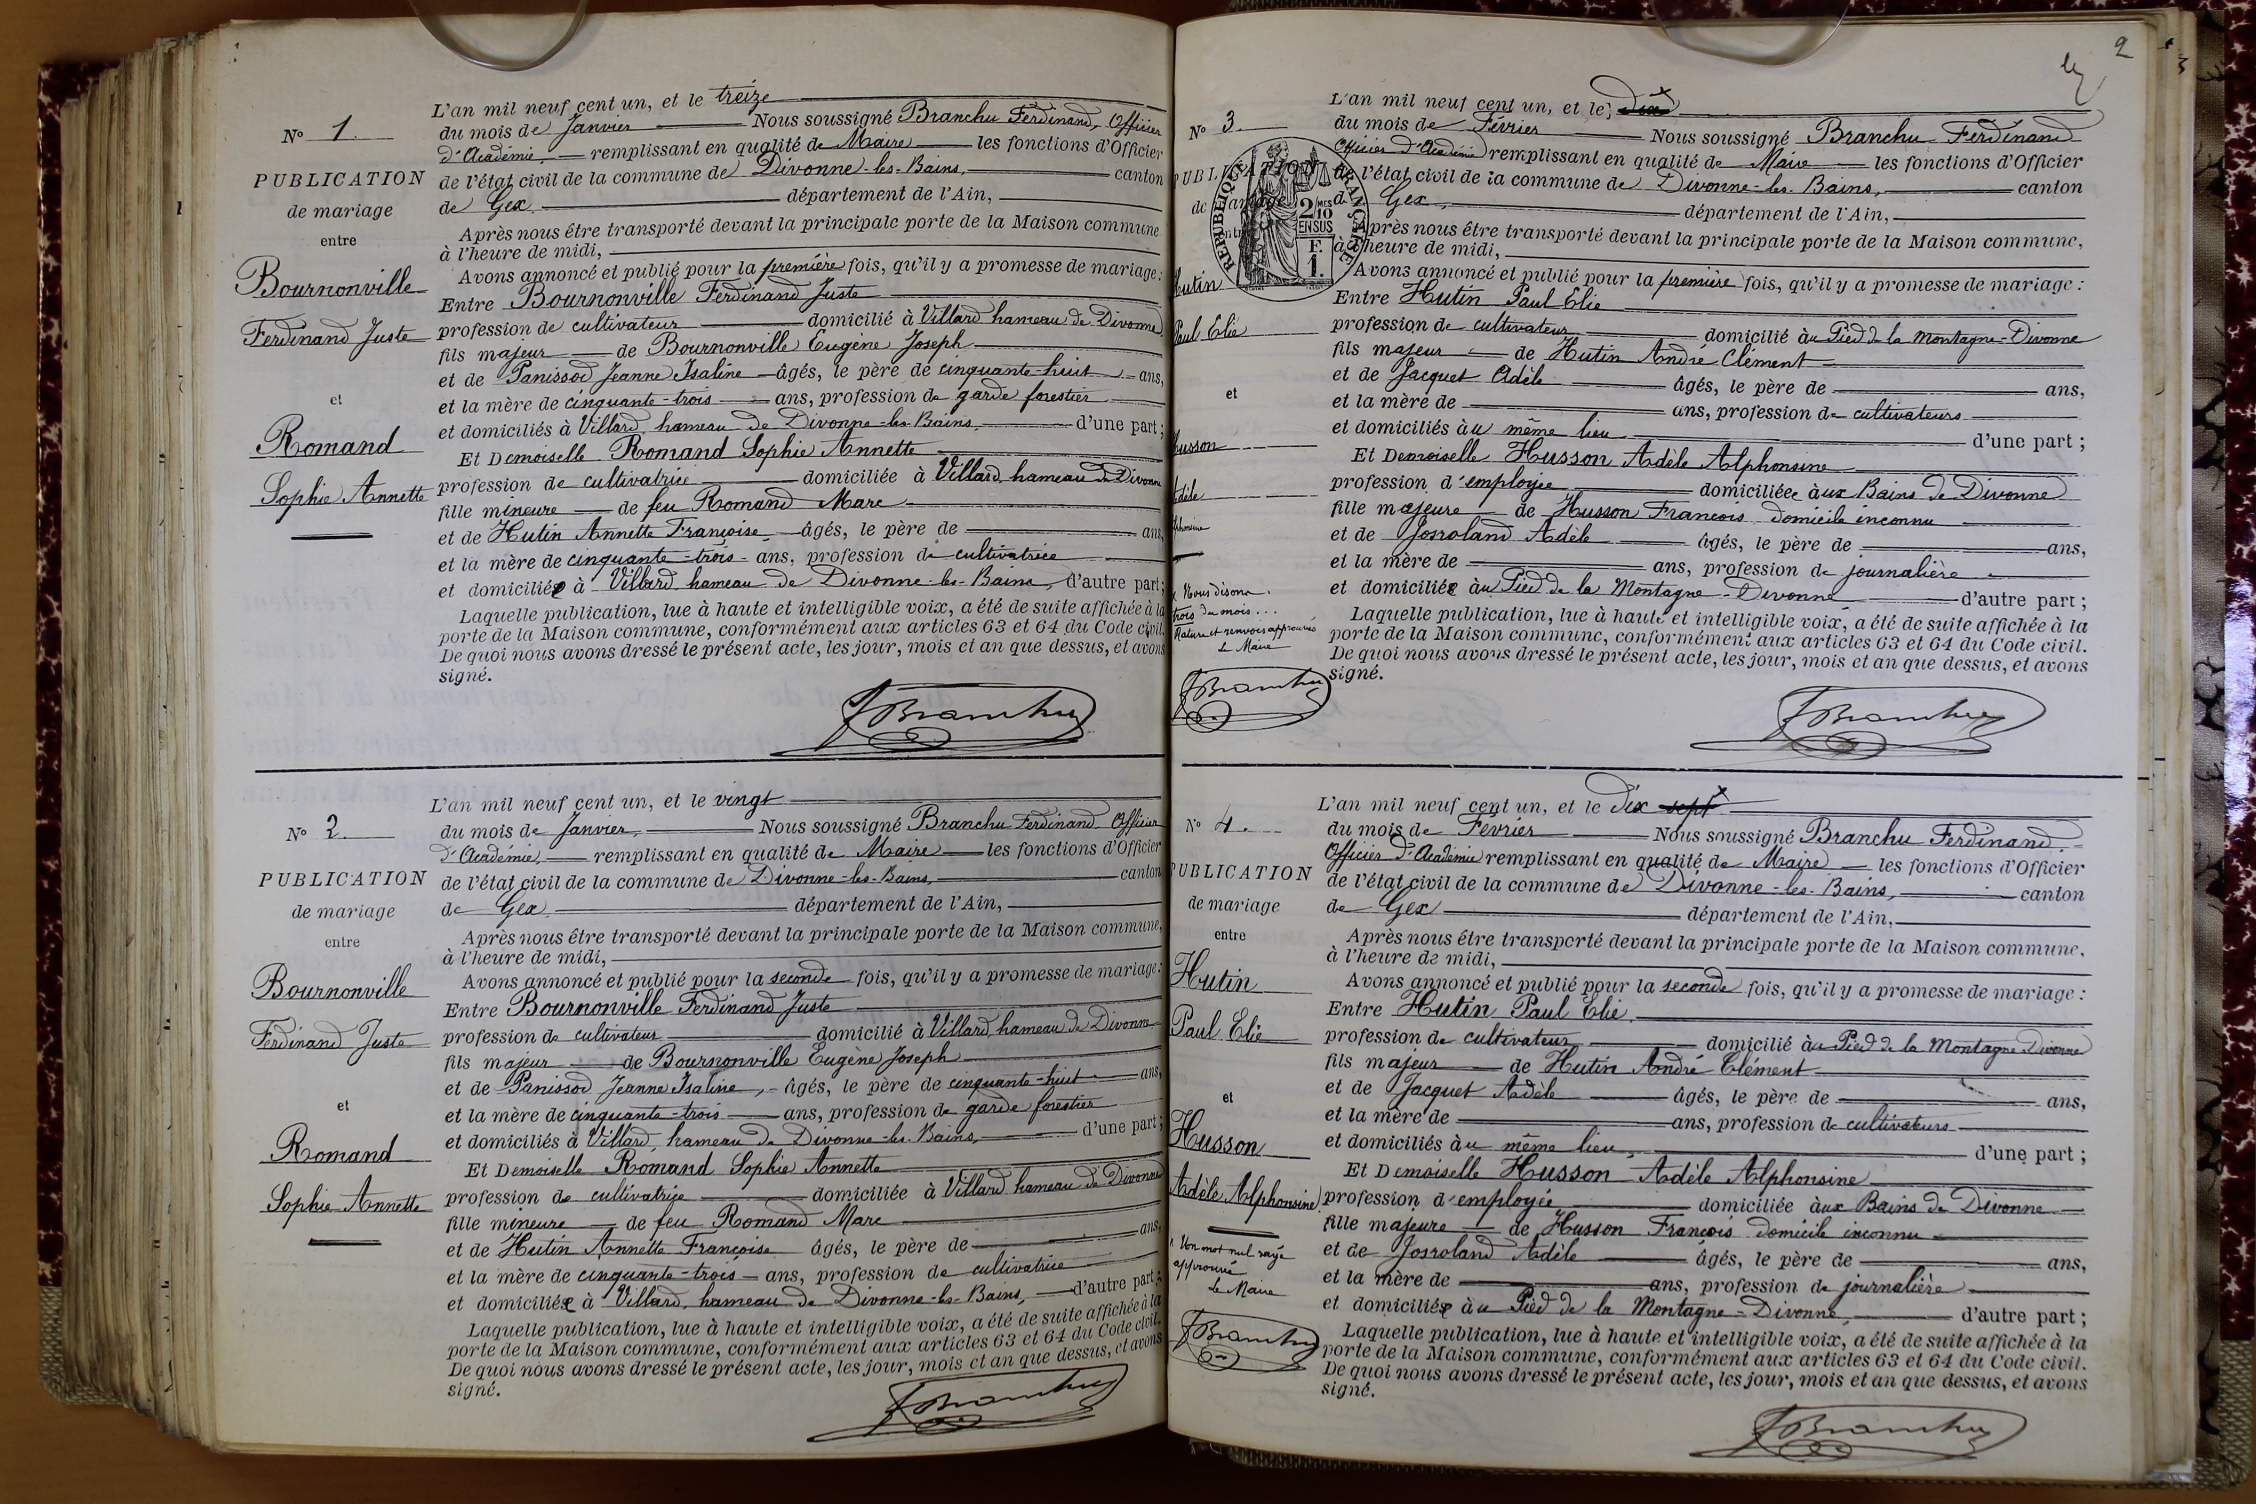 N° 1.
PUBLICATION
de mariage
entre
Bournonville
Ferdinand Juste
et
Romand
Sophie Annette
L'an mil neuf cent un, et le treize
du mois de Janvier Nous soussigné Branchu Ferdinand, Officier
d'Académie, remplissant en qualité de Maire les fonctions d'Officier
de l'état civil de la commune de Divonne-les-Bains, canton
de Gex département de l'Ain,
Après nous être transporté devant la principale porte de la Maison commune
à l'heure de midi,
Avons annoncé et publié pour la première fois, qu'il y a promesse de mariage:
Entre Bournonville Ferdinand Juste
profession de cultivateur domicilié à Villard hameau de Divonne
fils majeur de Bournonville Eugène Joseph
et de Panissod Jeanne Isaline âgés, le père de cinquante-huit ans,
et la mère de cinquante-trois ans, profession de garde forestier
et domiciliés à Villard hameau de Divonne-les-Bains, d'une part;
Et Demoiselle Romand Sophie Annette
profession de cultivatrice domiciliée à Villard hameau de Divonne
fille mineure de feu Romand Marc
et de Hutin Annette Françoise âgés, le père de ans,
et la mère de cinquante-trois ans, profession de cultivatrice
et domiciliée à Villard hameau de Divonne-les-Bains, d'autre part;
Laquelle publication, lue à haute et intelligible voix, a été de suite affichée à la
porte de la Maison commune, conformément aux articles 63 et 64 du Code civil.
De quoi nous avons dressé le présent acte, les jour, mois et an que dessus, et avons
signé.
F Branchu
N° 2.
PUBLICATION
de mariage
entre
Bournonville
Ferdinand Juste
et
Romand
Sophie Annette
L'an mil neuf cent un, et le vingt
du mois de Janvier, Nous soussigné Branchu Ferdinand Officier
d'Académie, remplissant en qualité de Maire les fonctions d'Officier
de l'état civil de la commune de Divonne-les-Bains, canton
de Gex département de l'Ain,
Après nous être transporté devant la principale porte de la Maison commune,
à l'heure de midi,
Avons annoncé et publié pour la seconde fois, qu'il y a promesse de mariage:
Entre Bournonville Ferdinand Juste
profession de cultivateur domicilié à Villard, hameau de Divonne
fils majeur de Bournonville Eugène Joseph
et de Panissod Jeanne Isaline, âgés, le père de cinquante-huit ans,
et la mère de cinquante-trois ans, profession de garde forestier
et domiciliés à Villard, hameau de Divonne-les-Bains, d'une part;
Et Demoiselle Romand Sophie Annette
profession de cultivatrice domiciliée à Villard hameau de Divonne
fille mineure de feu Romand Marc
et de Hutin Annette Françoise âgés, le père de ans,
et la mère de cinquante-trois ans, profession de cultivatrice
et domiciliée à Villard, hameau de Divonne-les-Bains, d'autre part;
Laquelle publication, lue à haute et intelligible voix, a été de suite affichée à la
porte de la Maison commune, conformément aux articles 63 et 64 du Code civil.
De quoi nous avons dressé le présent acte, les jour, mois et an que dessus, et avons
signé.
F Branchu
2
N° 3.
PUBLICATION
de mariage
entre
RÉPUBLIQUE FRANÇAISE
2/10 MES
EN SUS
F.
1.
Hutin
Paul Elie
et
Husson
Adèle
Alphonsine
x Nous disons
trois du mois...
Rature et renvois approuvés
Le Maire
F Branchu
L'an mil neuf cent un, et le dix x
du mois de Février Nous soussigné Branchu Ferdinand
Officier d'Académie remplissant en qualité de Maire les fonctions d'Officier
de l'état civil de la commune de Divonne-les-Bains, canton
de Gex, département de l'Ain,
Après nous être transporté devant la principale porte de la Maison commune,
à l'heure de midi,
Avons annoncé et publié pour la première fois, qu'il y a promesse de mariage:
Entre Hutin Paul Elie
profession de cultivateur domicilié au Pied de la Montagne-Divonne
fils majeur de Hutin André Clément
et de Jacquet Adèle âgés, le père de ans,
et la mère de ans, profession de cultivateurs
et domiciliés au même lieu d'une part;
Et Demoiselle Husson Adèle Alphonsine
profession d'employée domiciliée aux Bains de Divonne
fille majeure de Husson François domicile inconnu
et de Josroland Adèle âgés, le père de ans,
et la mère de ans, profession de journalière
et domiciliée au Pied de la Montagne-Divonne d'autre part;
Laquelle publication, lue à haute et intelligible voix, a été de suite affichée à la
porte de la Maison commune, conformément aux articles 63 et 64 du Code civil.
De quoi nous avons dressé le présent acte, les jour, mois et an que dessus, et avons
signé.
F Branchu
N° 4.
PUBLICATION
de mariage
entre
Hutin
Paul Elie
et
Husson
Adèle Alphonsine
x Un mot nul rayé
approuvé
Le Maire
F Branchu
L'an mil neuf cent un, et le dix sept x
du mois de Février Nous soussigné Branchu Ferdinand
Officier d'Académie remplissant en qualité de Maire les fonctions d'Officier
de l'état civil de la commune de Divonne-les-Bains, canton
de Gex département de l'Ain,
Après nous être transporté devant la principale porte de la Maison commune.
à l'heure de midi,
Avons annoncé et publié pour la seconde fois, qu'il y a promesse de mariage:
Entre Hutin Paul Elie
profession de cultivateur domicilié au Pied de la Montagne Divonne
fils majeur de Hutin André Clément
et de Jacquet Adèle âgés, le père de ans,
et la mère de ans, profession de cultivateurs
et domiciliés au même lieu, d'une part;
Et Demoiselle Husson Adèle Alphonsine
profession d'employée domiciliée aux Bains de Divonne
fille majeure de Husson François domicile inconnu
et de Josroland Adèle âgés, le père de ans,
et la mère de ans, profession de journalière
et domiciliée au Pied de la Montagne-Divonne, d'autre part;
Laquelle publication, lue à haute et intelligible voix, a été de suite affichée à la
porte de la Maison commune, conformément aux articles 63 et 64 du Code civil.
De quoi nous avons dressé le présent acte, les jour, mois et an que dessus, et avons
signé.
F Branchu